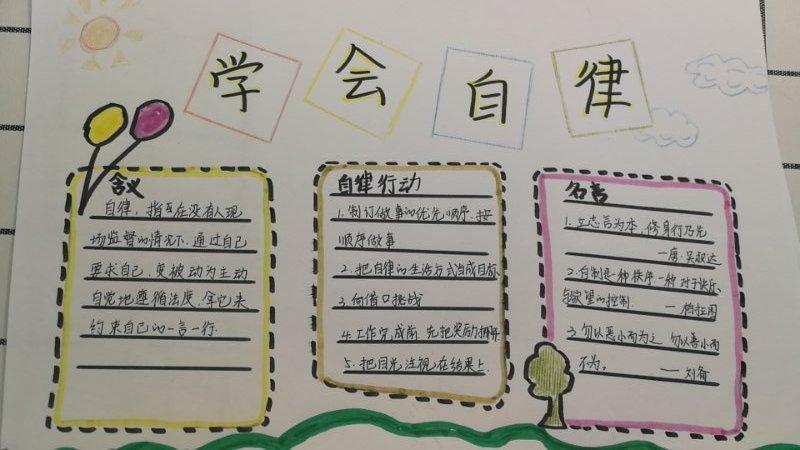 学会自律
含义
自律，指在没有人现
场监督的情况下，通过自己
要求自己，变被动为主动
自觉地遵循法度，拿它来
约束自己的一言一行.
自律行动
1.制订做事的优先顺序.按
顺序做事
2.把自律的生活方式当成目标.
3.向借口挑战
4.工作完成前 先把奖励挪开
5.把目光注视在结果上.
名言
1.立志言为本，修身行乃先
—唐·吴叔达
2.自制是一种秩序，一种对于快乐
与欲望的控制. — 柏拉图
3.勿以恶小而为之 勿以善小而
不为。 — 刘备